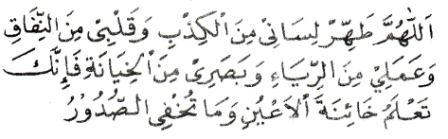 اَللّٰهُمَّ طَهِّرْ لِسَانِيْ مِنَ الْكِذْبِ وَقَلْبِيْ مِنَ النِّفَاقِ
وَعَمَلِيْ مِنَ الرِّيَاءِ وَبَصَرِيْ مِنَ الْخِيَانَةِ فَإِنَّكَ
تَعْلَمُ خَائِنَةَ اْلاَعْيُنِ وَمَا تُخْفِى الصُّدُوْرُ